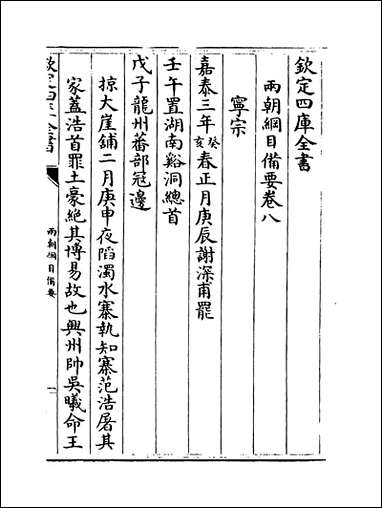 欽定四庫全書
兩朝綱目備要卷八
寧宗
嘉泰三年癸亥春正月庚辰謝深甫罷
壬午置湖南谿洞總首
戊子龍州蕃部冦邊
掠大崖鋪二月庚申夜陷濁水寨執知寨范浩屠其
家蓋浩首罪土豪絶其博易故也興州帥吳曦命王
欽定四庫全書
兩朝綱目備要
一